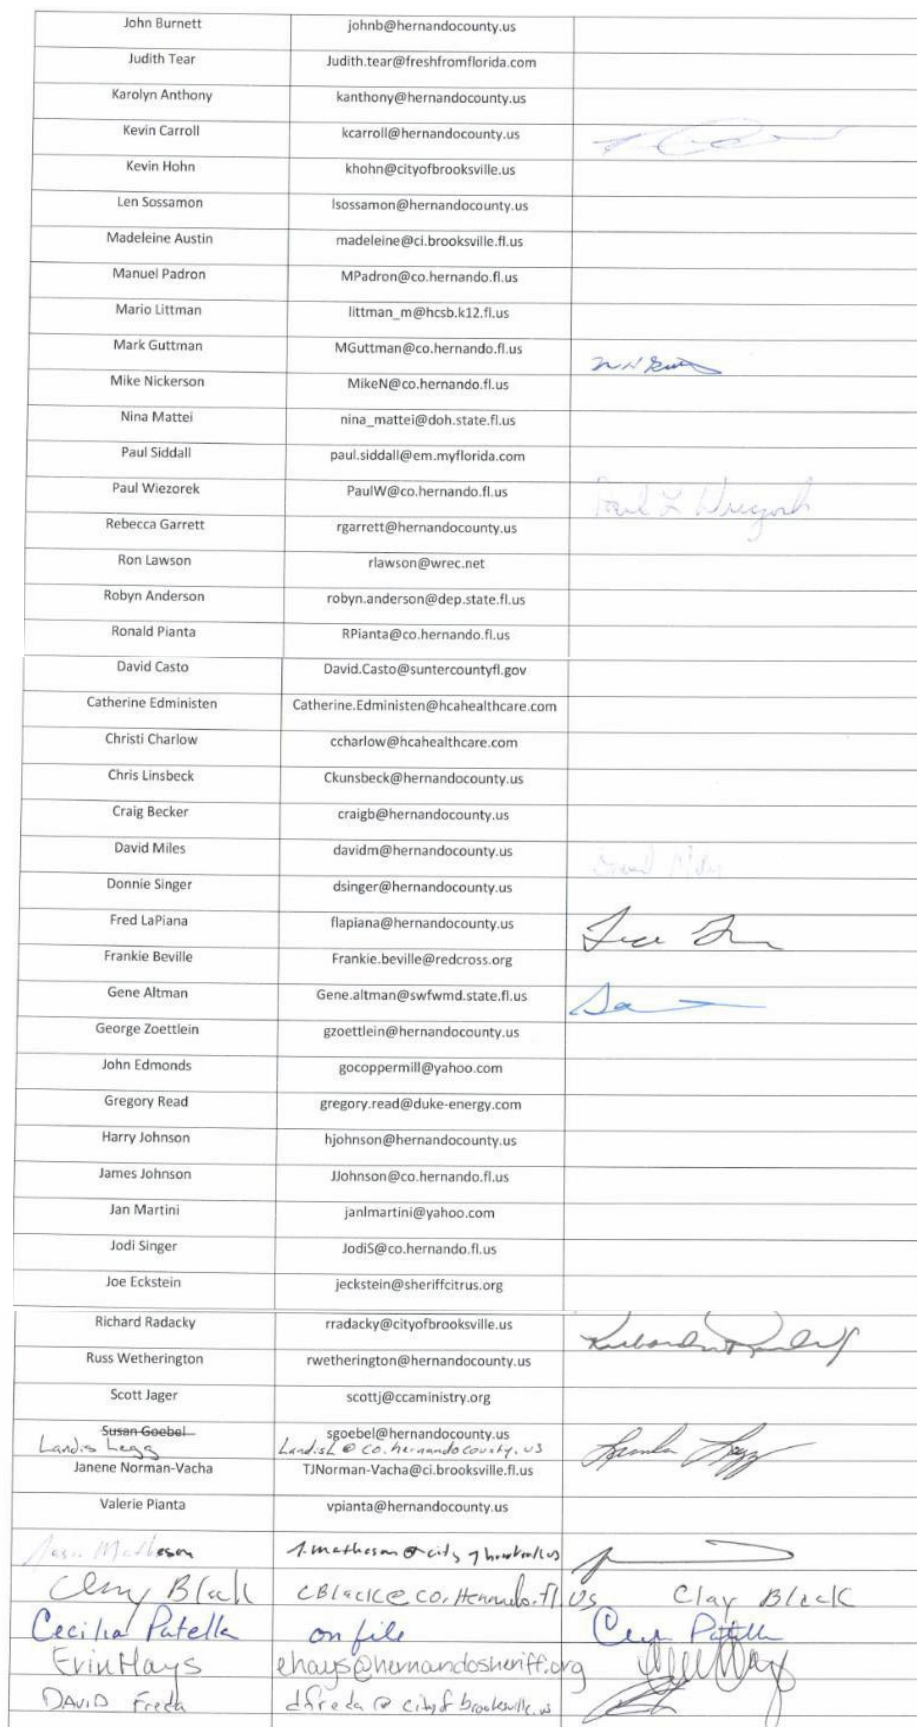 John Burnett johnb@hernandocounty.us
Judith Tear Judith.tear@freshfromflorida.com
Karolyn Anthony kanthony@hernandocounty.us
Kevin Carroll kcarroll@hernandocounty.us
Kevin Hohn khohn@cityofbrooksville.us
Len Sossamon lsossamon@hernandocounty.us
Madeleine Austin madeleine@ci.brooksville.fl.us
Manuel Padron MPadron@co.hernando.fl.us
Mario Littman littman_m@hcsb.k12.fl.us
Mark Guttman MGuttman@co.hernando.fl.us
Mike Nickerson MikeN@co.hernando.fl.us
Nina Mattei nina_mattei@doh.state.fl.us
Paul Siddall paul.siddall@em.myflorida.com
Paul Wiezorek PaulW@co.hernando.fl.us
Rebecca Garrett rgarrett@hernandocounty.us
Ron Lawson rlawson@wrec.net
Robyn Anderson robyn.anderson@dep.state.fl.us
Ronald Pianta RPianta@co.hernando.fl.us
David Casto David.Casto@suntercountyfl.gov
Catherine Edministen Catherine.Edministen@hcahealthcare.com
Christi Charlow ccharlow@hcahealthcare.com
Chris Linsbeck Ckunsbeck@hernandocounty.us
Craig Becker craigb@hernandocounty.us
David Miles davidm@hernandocounty.us David Miles
Donnie Singer dsinger@hernandocounty.us
Fred LaPiana flapiana@hernandocounty.us
Frankie Beville Frankie.beville@redcross.org
Gene Altman Gene.altman@swfwmd.state.fl.us
George Zoettlein gzoettlein@hernandocounty.us
John Edmonds gocoppermill@yahoo.com
Gregory Read gregory.read@duke-energy.com
Harry Johnson hjohnson@hernandocounty.us
James Johnson JJohnson@co.hernando.fl.us
Jan Martini janlmartini@yahoo.com
Jodi Singer JodiS@co.hernando.fl.us
Joe Eckstein jeckstein@sheriffcitrus.org
Richard Radacky rradacky@cityofbrooksville.us
Russ Wetherington rwetherington@hernandocounty.us
Scott Jager scottj@ccaministry.org
Susan Goebel sgoebel@hernandocounty.us
Landis Legg LandisL@co.hernandocounty.us
Janene Norman-Vacha TJNorman-Vacha@ci.brooksville.fl.us
Valerie Pianta vpianta@hernandocounty.us
Matheson
Clay Black CBlack@co.Hernando.fl.us Clay Black
Cecilia Patella on file
Erin Hays ehays@hernandosheriff.org
DAVID Freda dfreda@cityofbrooksville.us